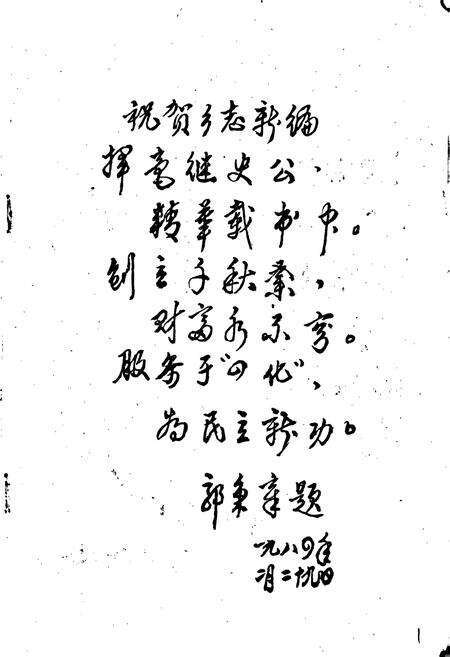 祝贺乡志新编
挥毫继史公,
精華载书中。
创立千秋業,
财富永不穷。
服务于“四化”,
为民立新功。
郭秉章题
一九八四年
二月二十九日
1